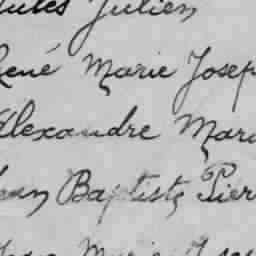 Jules Julien
René Marie Josep
Alexandre Mari
Jean Baptiste Pier
Marie Jose